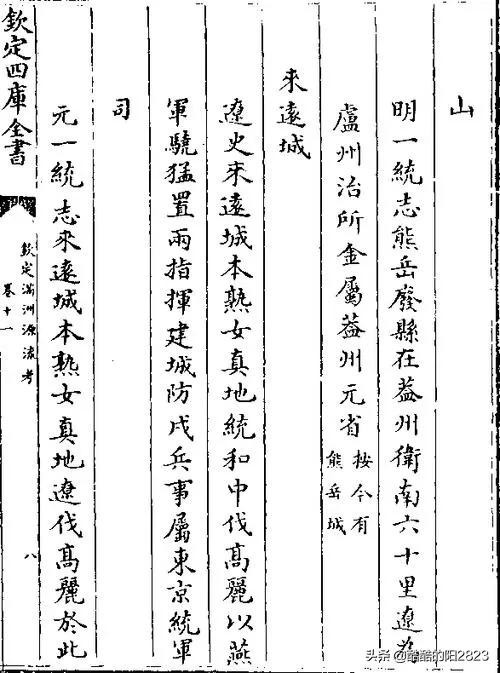 山
明一統志熊岳廢縣在葢州衛南六十里遼為
盧州治所金屬葢州元省
按今有
熊岳城
來遠城
遼史來遠城本熟女真地統和中伐髙麗以燕
軍驍猛置兩指揮建城防戍兵事屬東京統軍
司
元一統志來遠城本熟女真地遼伐髙麗於此
欽定四庫全書
欽定滿洲源流考
卷十一
八
头条 @酷酷的阳2823